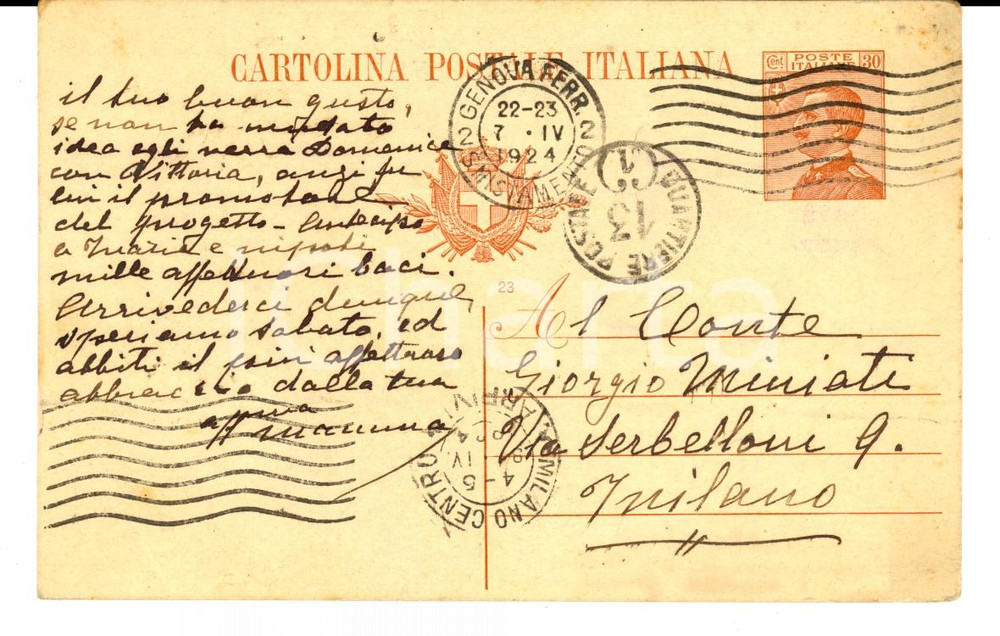 CARTOLINA POSTALE ITALIANA
Cent. POSTE ITALIANE 30
GENOVA FERR.
22-23
7 · IV
1924
2 SMISTAMENTO 2
PORTALETTERE
QUARTIERE POSTALE
1
13
il tuo buon gusto,
se non ha mutato
idea egli verrà Domenica
con Vittoria, anzi fu
lui il promotore
del progetto -
a Maria e nipoti
mille affettuosi baci.
Arrivederci dunque,
speriamo sabato, ed
abbiti il più affettuoso
abbraccio dalla tua
affma mamma
23
Al Conte
Giorgio Miniati
Via Serbelloni 9.
Milano
MILANO CENTRO
ARRIVI
4-5
IV
1924